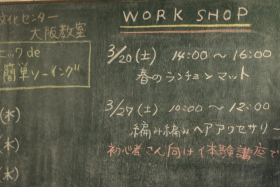 文化センター
大阪教室
ニック de
簡単ソーイング
(水)
(木)
(木)
WORK SHOP
3/20(土) 14:00~16:00
春のランチョンマット
3/27(土) 10:00~12:00
編み編みヘアアクセサリー
初心者さん向け体験講座